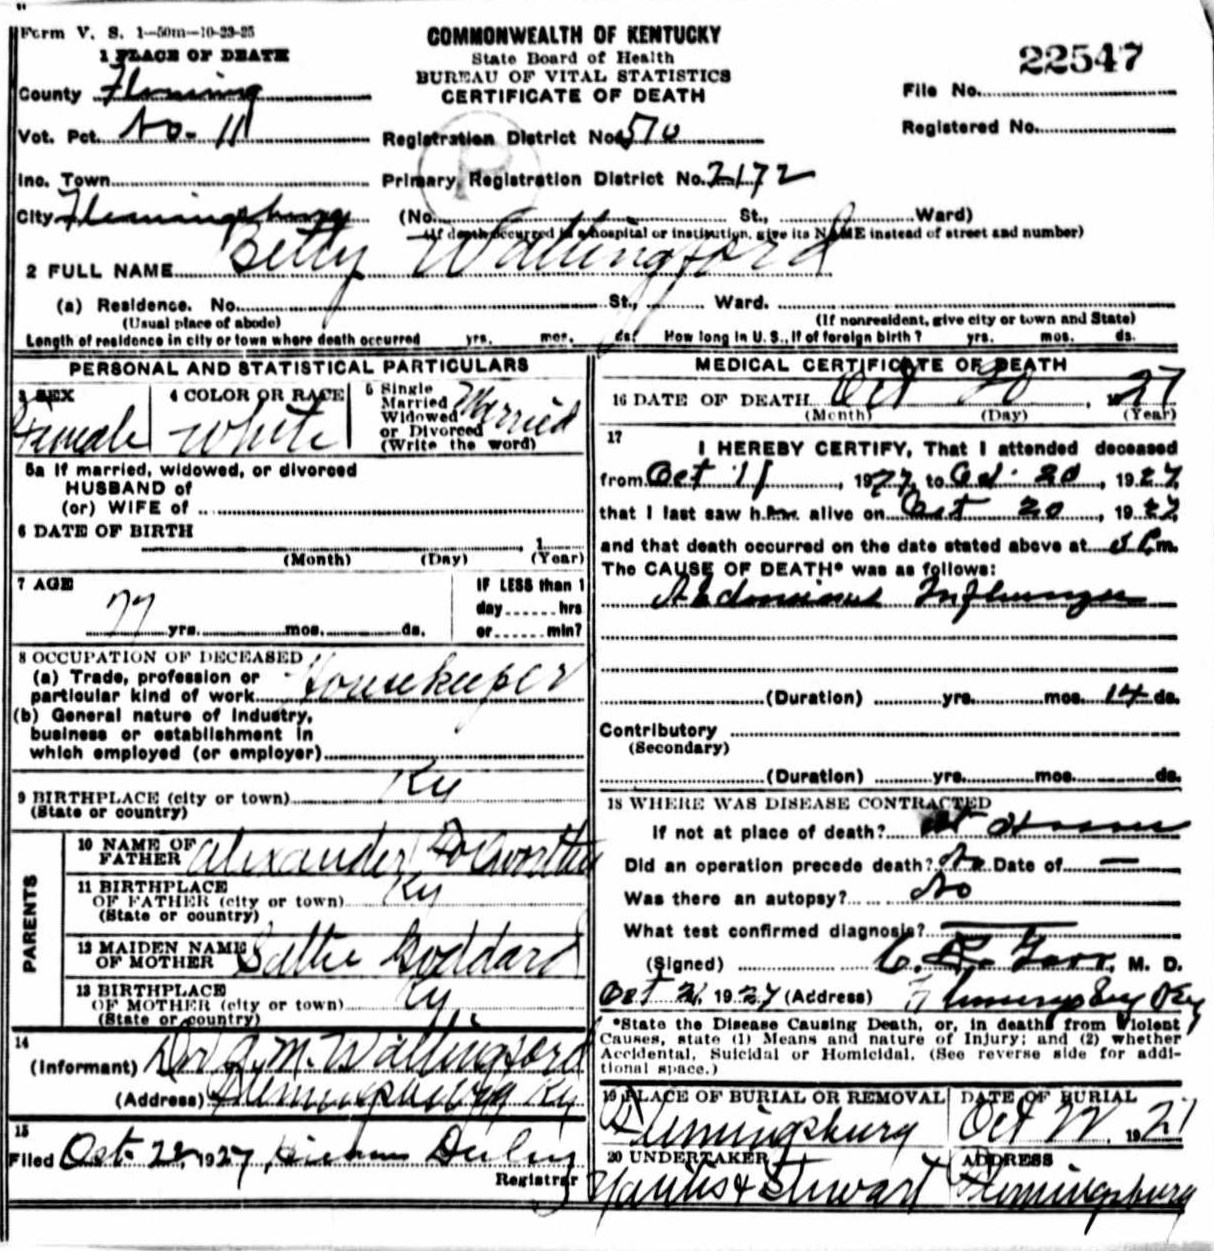 Form V. S. 1—50m—10-23-25
COMMONWEALTH OF KENTUCKY
State Board of Health
BUREAU OF VITAL STATISTICS
CERTIFICATE OF DEATH
22547
1 PLACE OF DEATH
County Fleming
File No.
Vot. Pct. No. 11
Registration District No. 570
Registered No.
Inc. Town
Primary Registration District No. 7172
City Flemingsburg (No. St., Ward)
(If death occurred in a hospital or institution, give its NAME instead of street and number)
2 FULL NAME Betty Wallingford
(a) Residence. No. St., Ward.
(Usual place of abode) (If nonresident, give city or town and State)
Length of residence in city or town where death occurred yrs. mos. ds. How long in U. S., if of foreign birth? yrs. mos. ds.
PERSONAL AND STATISTICAL PARTICULARS
3 SEX Female
4 COLOR OR RACE White
5 Single Married Widowed or Divorced (Write the word) Married
5a If married, widowed, or divorced
HUSBAND of
(or) WIFE of
6 DATE OF BIRTH
(Month) (Day) 1 (Year)
7 AGE
77 yrs. mos. ds.
IF LESS than 1
day hrs
or min?
8 OCCUPATION OF DECEASED
(a) Trade, profession or
particular kind of work Housekeeper
(b) General nature of Industry,
business or establishment in
which employed (or employer)
9 BIRTHPLACE (city or town) Ky
(State or country)
PARENTS
10 NAME OF FATHER Alexander
11 BIRTHPLACE
OF FATHER (city or town) Ky
(State or country)
12 MAIDEN NAME
OF MOTHER Sallie Goddard
13 BIRTHPLACE
OF MOTHER (city or town) Ky
(State or country)
14
(Informant) Dr A. M. Wallingford
(Address) Flemingsburg Ky
15
Filed Oct 22, 1927,
Registrar
MEDICAL CERTIFICATE OF DEATH
16 DATE OF DEATH Oct 20, 1927
(Month) (Day) (Year)
17
I HEREBY CERTIFY, That I attended deceased
from Oct 11, 1927, to Oct. 20, 1927,
that I last saw her alive on Oct 20, 1927,
and that death occurred on the date stated above at m.
The CAUSE OF DEATH* was as follows:
Abdominal Influenza
(Duration) yrs. mos. 14 ds.
Contributory
(Secondary)
(Duration) yrs. mos. ds.
18 WHERE WAS DISEASE CONTRACTED
If not at place of death? At Home
Did an operation precede death? No Date of —
Was there an autopsy? No
What test confirmed diagnosis? —
(Signed) C. R. Garr, M. D.
Oct 21, 1927 (Address) Flemingsburg Ky
*State the Disease Causing Death, or, in deaths from Violent
Causes, state (1) Means and nature of Injury; and (2) whether
Accidental, Suicidal or Homicidal. (See reverse side for addi-
tional space.)
19 PLACE OF BURIAL OR REMOVAL
Flemingsburg
DATE OF BURIAL
Oct 22, 1927
20 UNDERTAKER
& Stewart
ADDRESS
Flemingsburg